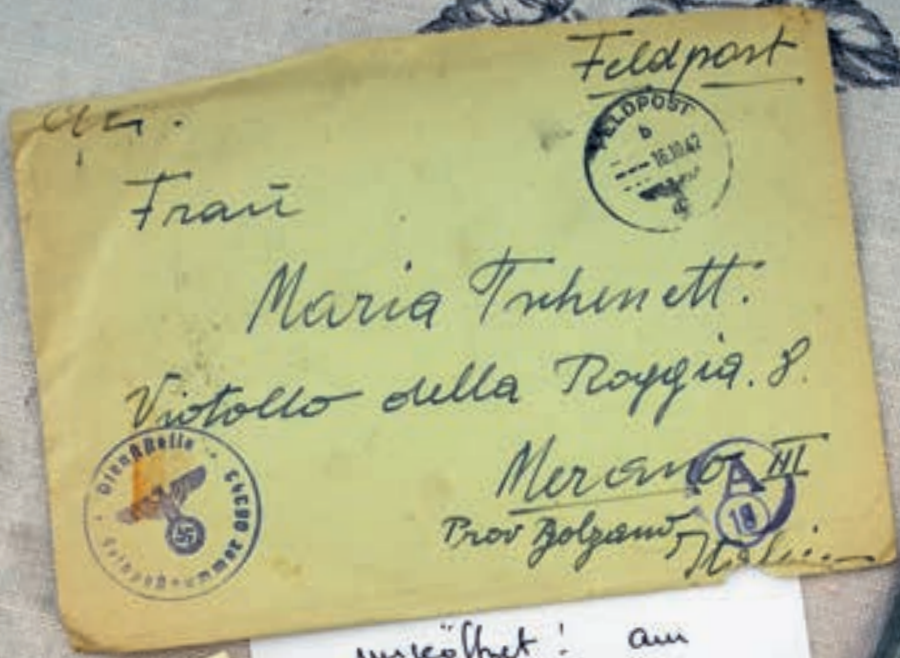 Feldpost
FELDPOST
b
16.10.42
Frau
Maria Tschenett.
Viotollo della Roggia. 8.
Merano III
Prov Bolzano
Italien
A
18
Dienststelle
Feldpostnummer 08343
am